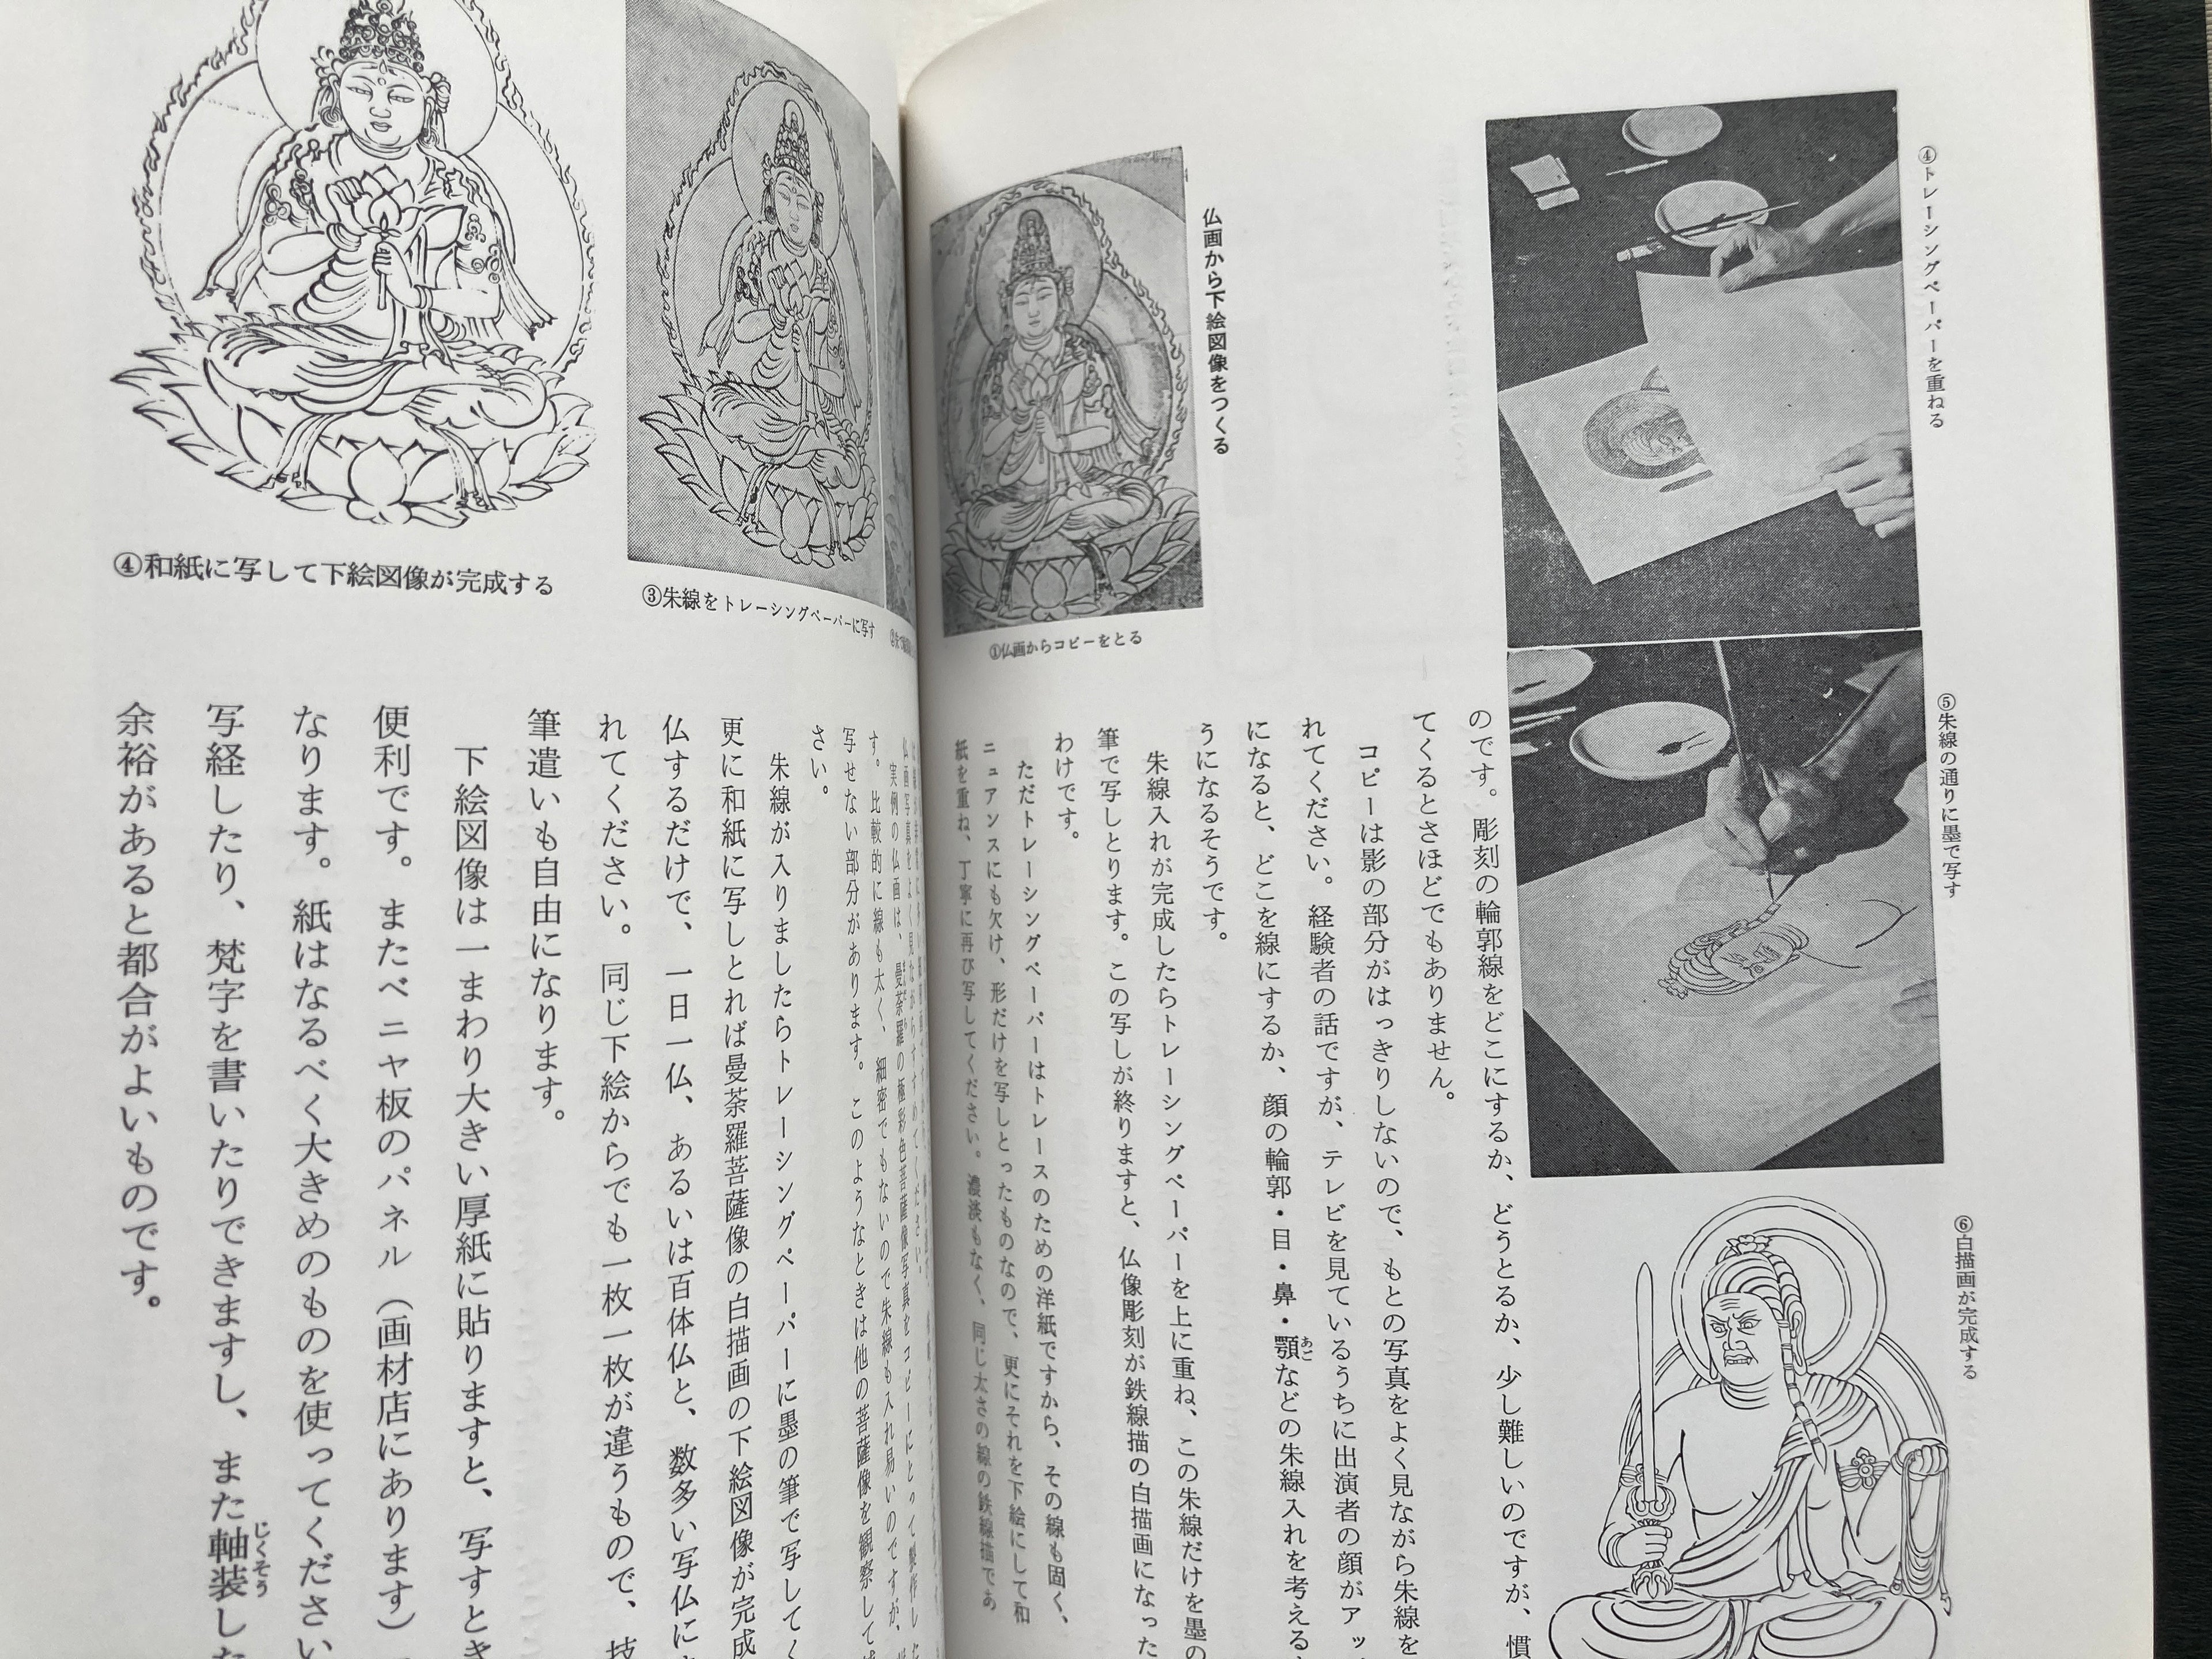 ④トレーシングペーパーを重ねる
⑤朱線の通りに墨で写す
⑥白描画が完成する
のです。彫刻の輪郭線をどこにするか、どうとるか、少し難しいのですが、慣
てくるとさほどでもありません。
コピーは影の部分がはっきりしないので、もとの写真をよく見ながら朱線を
れてください。経験者の話ですが、テレビを見ているうちに出演者の顔がアッ
になると、どこを線にするか、顔の輪郭・目・鼻・顎などの朱線入れを考える
あご
うになるそうです。
朱線入れが完成したらトレーシングペーパーを上に重ね、この朱線だけを墨の
筆で写しとります。この写しが終りますと、仏像彫刻が鉄線描の白描画になった
わけです。
ただトレーシングペーパーはトレースのための洋紙ですから、その線も固く、
ニュアンスにも欠け、形だけを写しとったものなので、更にそれを下絵にして和
紙を重ね、丁寧に再び写してください。濃淡もなく、同じ太さの線の鉄線描であ
仏画から下絵図像をつくる
①仏画からコピーをとる
③朱線をトレーシングペーパーに写す
④和紙に写して下絵図像が完成する
仏画写真をよく見ながらすすめてください。
実例の仏画は、曼荼羅の極彩色菩薩像写真をコピーにとって製作し
す。比較的に線も太く、細密でもないので朱線も入れ易いのですが、
写せない部分があります。このようなときは他の菩薩像を観察して
さい。
朱線が入りましたらトレーシングペーパーに墨の筆で写してく
更に和紙に写しとれば曼荼羅菩薩像の白描画の下絵図像が完成
仏するだけで、一日一仏、あるいは百体仏と、数多い写仏に
れてください。同じ下絵からでも一枚一枚が違うもので、技
筆遣いも自由になります。
下絵図像は一まわり大きい厚紙に貼りますと、写すとき
便利です。またベニヤ板のパネル（画材店にあります）
なります。紙はなるべく大きめのものを使ってください
写経したり、梵字を書いたりできますし、また軸装した
じくそう
余裕があると都合がよいものです。